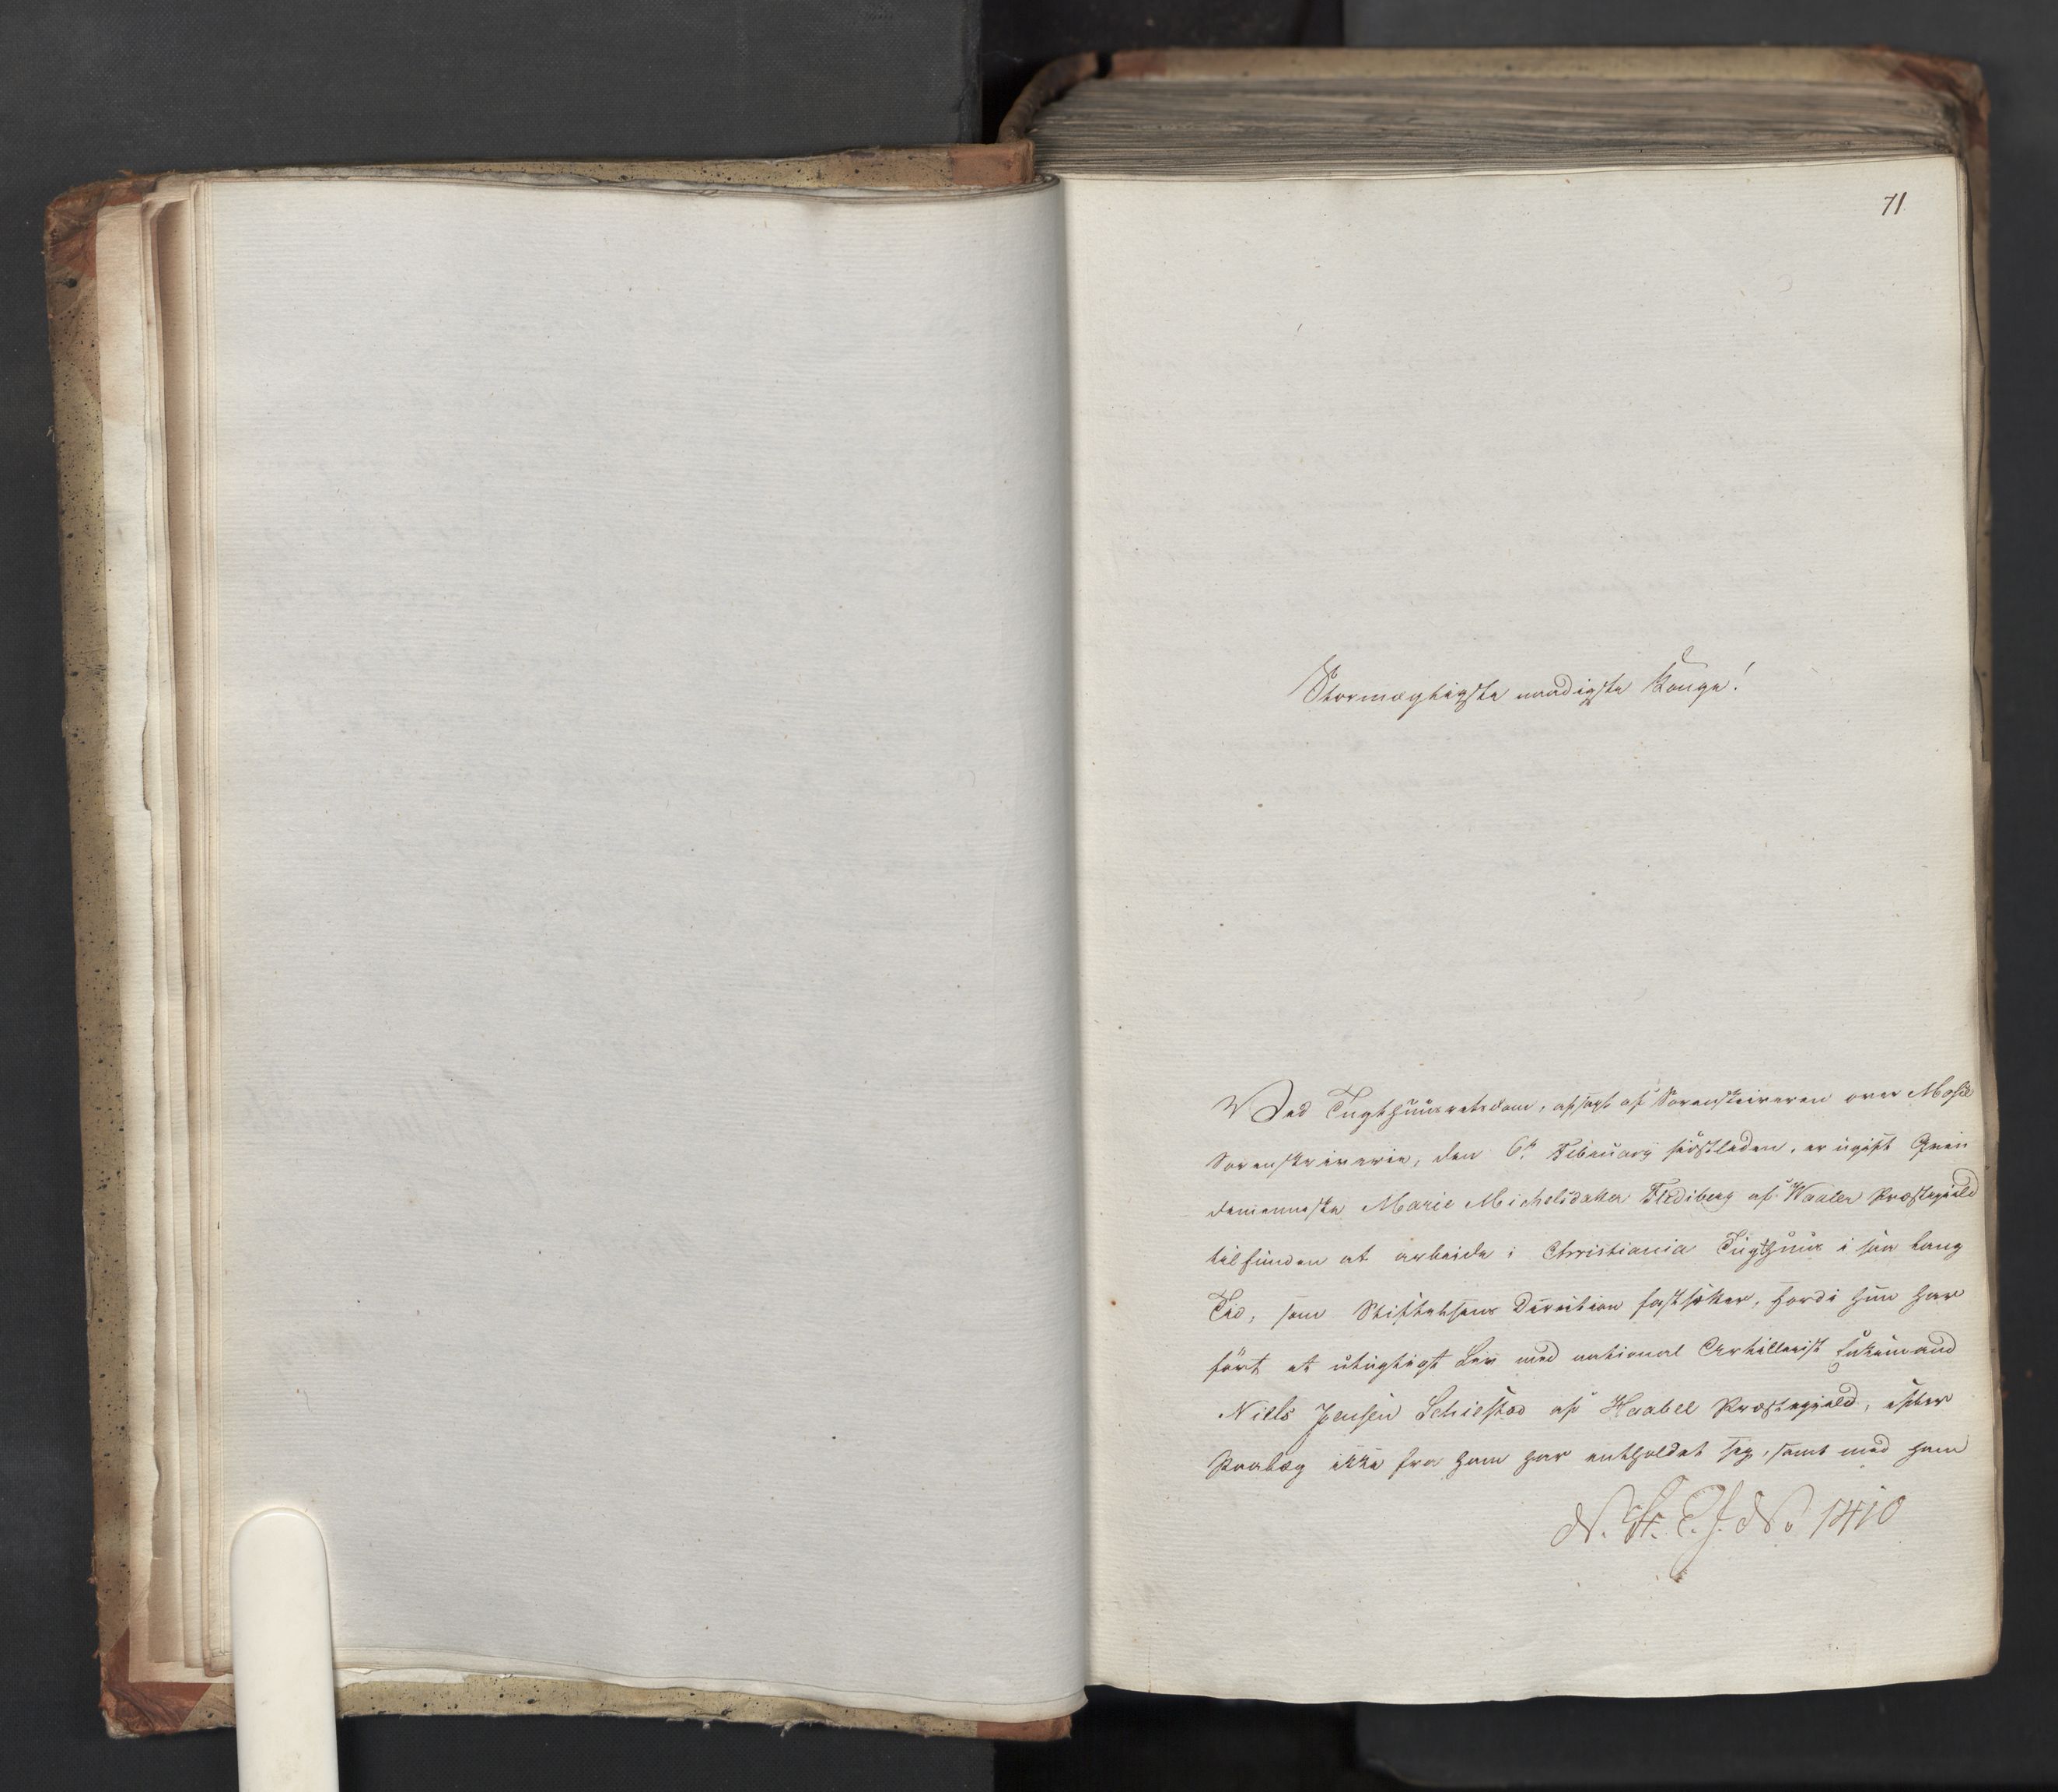 71
Stormægtigste naadigste Konge!
Ved Tugthuusretsdom, afsagt af Sorenskriveren over Mosse
Sorenskriverie, den 6te Februarii sidstleden, er ugift Qvin
demenneske Marie Michelsdatter Frediberg af Waaler Præstegield
tilfunden at arbeide i Christiania Tugthuus i saa lang
Tid, som Stiftelsens Direction fastsætter, fordi hun har
ført et utugtigt Lev med national Artillerist Enkemand
Niels Jensen Schiestad af Haabel Præstegield, efter
Paalæg ikke fra ham har entholdet sig, samt med ham
N. St. C. J. No 1410